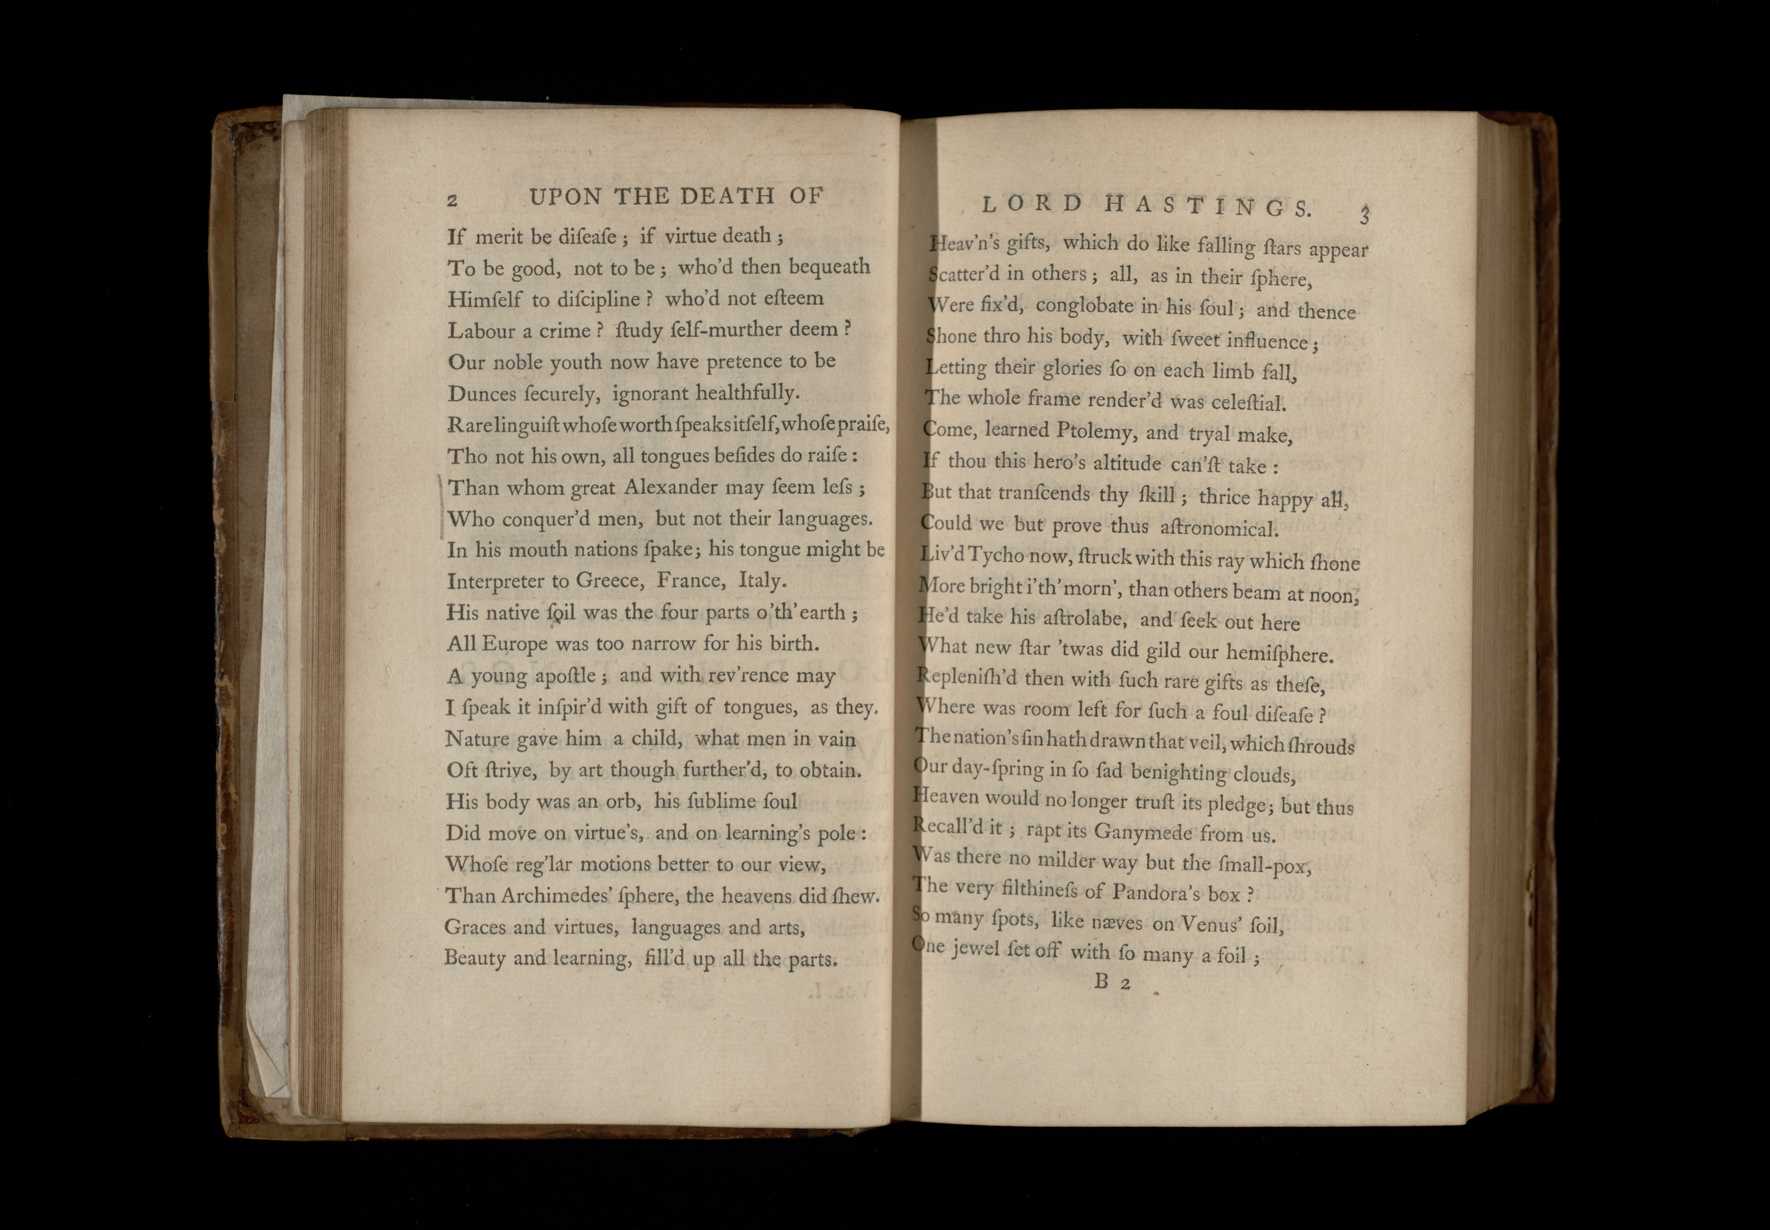 2 UPON THE DEATH OF
If merit be diſeaſe ; if virtue death ;
To be good, not to be ; who'd then bequeath
Himſelf to diſcipline ? who'd not eſteem
Labour a crime ? ſtudy ſelf-murther deem ?
Our noble youth now have pretence to be
Dunces ſecurely, ignorant healthfully.
Rare linguiſt whoſe worth ſpeaks itſelf, whoſe praiſe,
Tho not his own, all tongues beſides do raiſe :
Than whom great Alexander may ſeem leſs ;
Who conquer'd men, but not their languages.
In his mouth nations ſpake; his tongue might be
Interpreter to Greece, France, Italy.
His native ſoil was the four parts o'th' earth ;
All Europe was too narrow for his birth.
A young apoſtle ; and with rev'rence may
I ſpeak it inſpir'd with gift of tongues, as they.
Nature gave him a child, what men in vain
Oft ſtrive, by art though further'd, to obtain.
His body was an orb, his ſublime ſoul
Did move on virtue's, and on learning's pole :
Whoſe reg'lar motions better to our view,
Than Archimedes' ſphere, the heavens did ſhew.
Graces and virtues, languages and arts,
Beauty and learning, fill'd up all the parts.
LORD HASTINGS. 3
Heav'n's gifts, which do like falling ſtars appear
Scatter'd in others ; all, as in their ſphere,
Were fix'd, conglobate in his ſoul ; and thence
Shone thro his body, with ſweet influence ;
Letting their glories ſo on each limb fall,
The whole frame render'd was celeſtial.
Come, learned Ptolemy, and tryal make,
If thou this hero's altitude can'ſt take :
But that tranſcends thy ſkill ; thrice happy all,
Could we but prove thus aſtronomical.
Liv'd Tycho now, ſtruck with this ray which ſhone
More bright i'th' morn', than others beam at noon,
He'd take his aſtrolabe, and ſeek out here
What new ſtar 'twas did gild our hemiſphere.
Repleniſh'd then with ſuch rare gifts as theſe,
Where was room left for ſuch a foul diſeaſe ?
The nation's ſin hath drawn that veil, which ſhrouds
Our day-ſpring in ſo ſad benighting clouds,
Heaven would no longer truſt its pledge; but thus
Recall'd it ; rapt its Ganymede from us.
Was there no milder way but the ſmall-pox,
The very filthineſs of Pandora's box ?
So many ſpots, like næves on Venus' ſoil,
One jewel ſet off with ſo many a foil ;
B 2